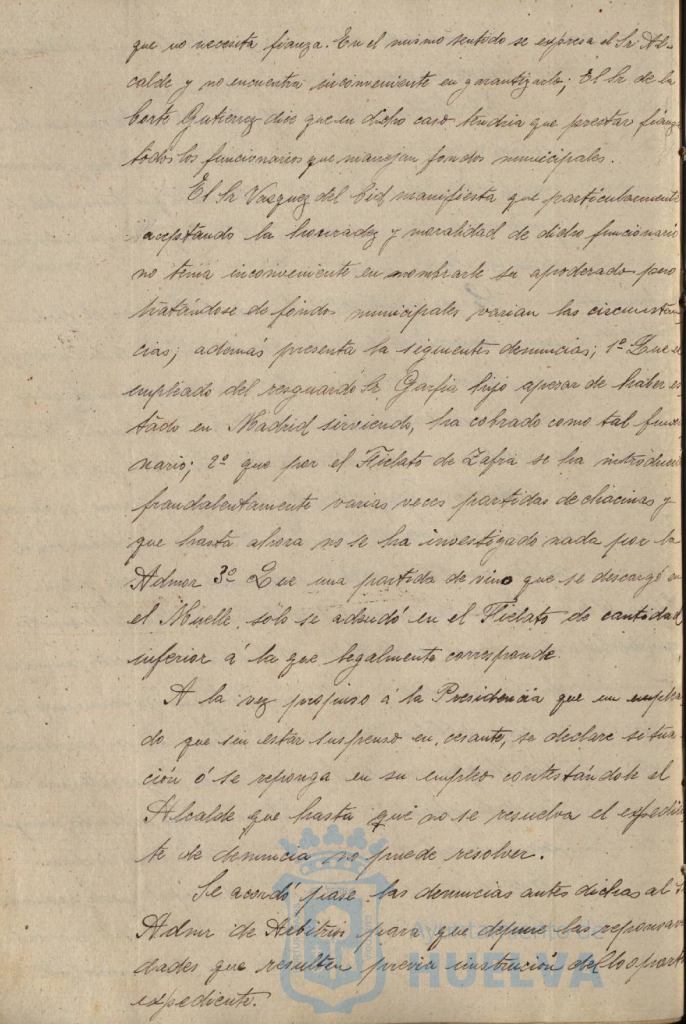 que no necesita fianza. En el mismo sentido se expresa el Sr Al-
calde y no encuentra inconveniente en garantizarlo; El Sr de la
Corte Gutierrez dice que en dicho caso tendria que prestar fianza
todos los funcionarios que manejan fondos municipales.
El Sr Vazquez del Cid manifiesta que particularmente
aceptando la honradez y moralidad de dicho funcionario
no tenia inconveniente en nombrarle su apoderado pero
tratándose de fondos municipales varian las circunstan
cias; además presenta la siguientes denuncias; 1º Que el
empleado del resguardo Sr Garfia hijo apesar de haber es
tado en Madrid sirviendo, ha cobrado como tal funcio
nario; 2º que por el Fielato de Zafra se ha introducido
fraudalentamente varias veces partidas de chacinas y
que hasta ahora no se ha investigado nada por la
Admor 3º Que una partida de vino que se descargó en
el Muelle, solo se adeudó en el Fielato de cantidad
inferior á la que legalmente corresponde.
A la vez propuso á la Presidencia que un emplea
do que sin estar suspenso en, cesante, se declare situa
ción ó se reponga en su empleo contestándole el
Alcalde que hasta que no se resuelva el expedien
te de denuncia no puede resolver.
Se acordó pase las denuncias antes dichas al S
Admr de Arbitrios para que depure las reponsavi
dades que resulten previa instrución del aparte
expediente.
Ayuntamiento de
HUELVA